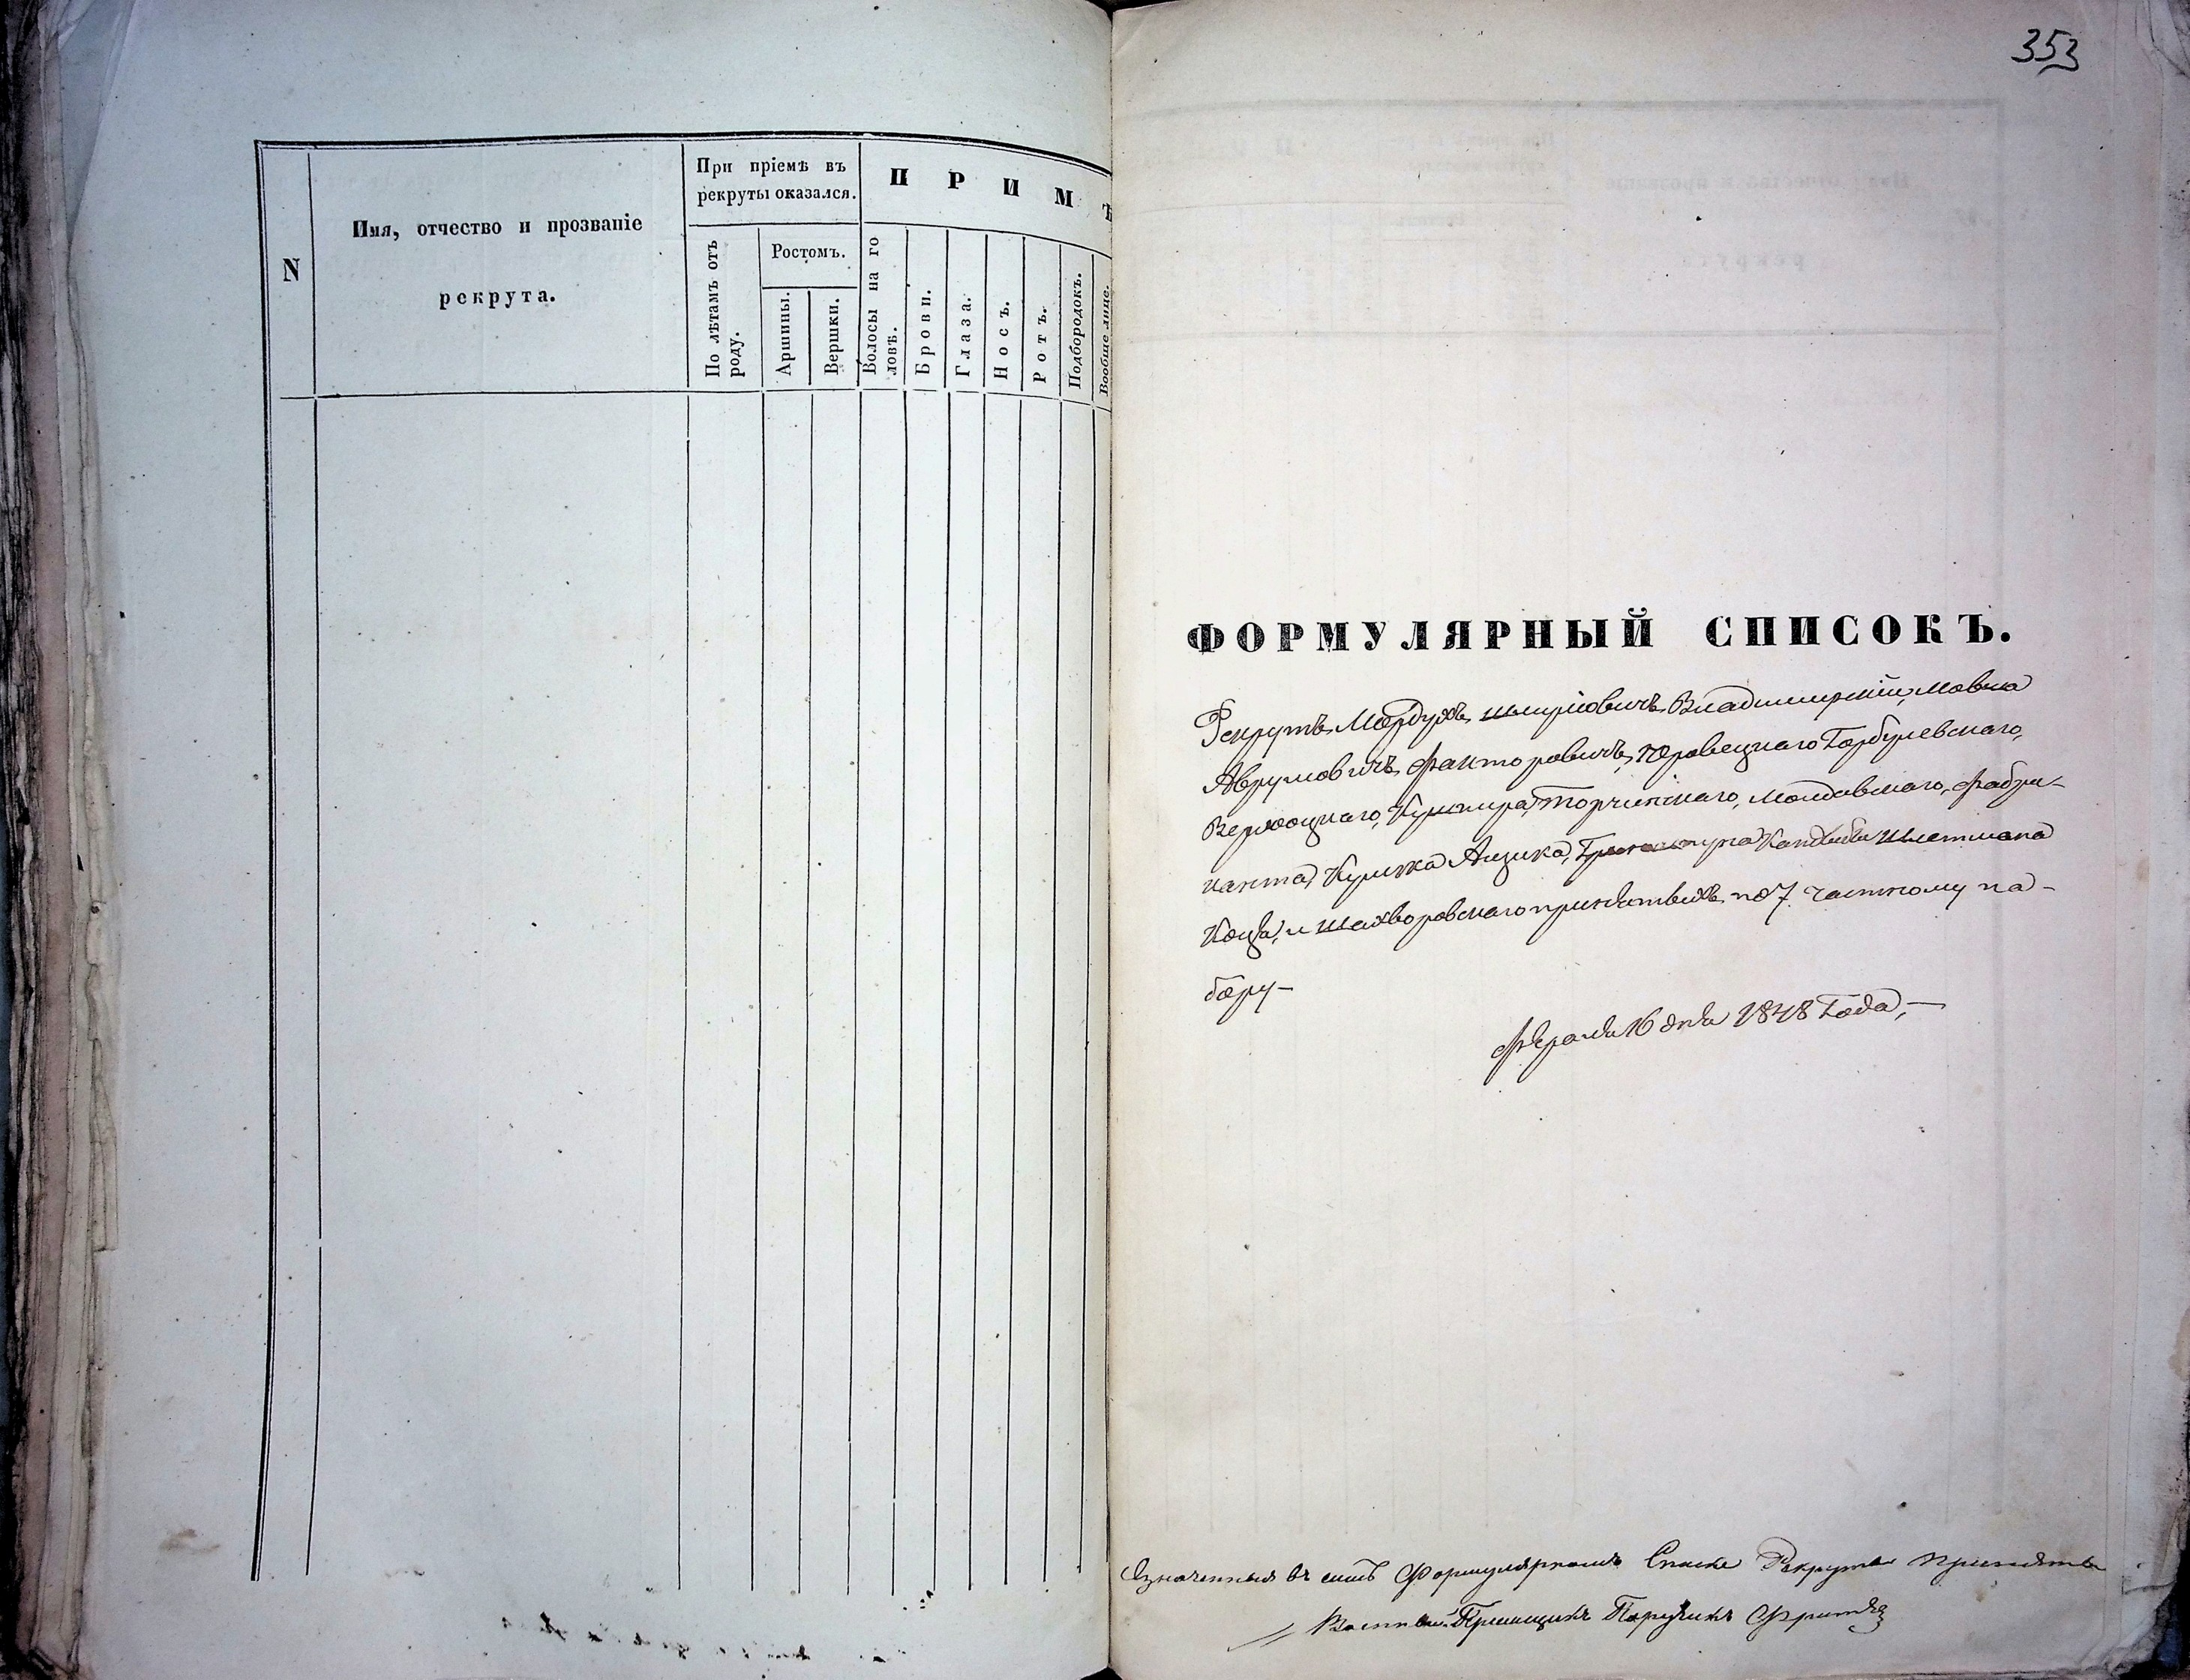 N
Имя, отчество и прозваніе
рекрута.
При пріемѣ въ
рекруты оказался.
По лѣтамъ отъ
роду.
Ростомъ.
Аршины.
Вершки.
ПРИМѢ
Волосы на го
ловѣ.
Брови.
Глаза.
Носъ.
Ротъ.
Подбородокъ.
Вообще лице.
353
ФОРМУЛЯРНЫЙ СПИСОКЪ.
Рекрутъ Мордухъ Владимирскій, Мовша
Аврумовичъ Факторовичъ, Юровецкаго Горбулевскаго,
Кушнира, Торчинскаго, Молдавскаго, Фабри-
канта,
Коца, и принятыхъ по 7 частному на-
бору –
Февраля 16 дня 1848 Года, –
Означенныя въ семъ Формулярномъ Списке Рекруты приняты
Пріемщикъ Поручикъ